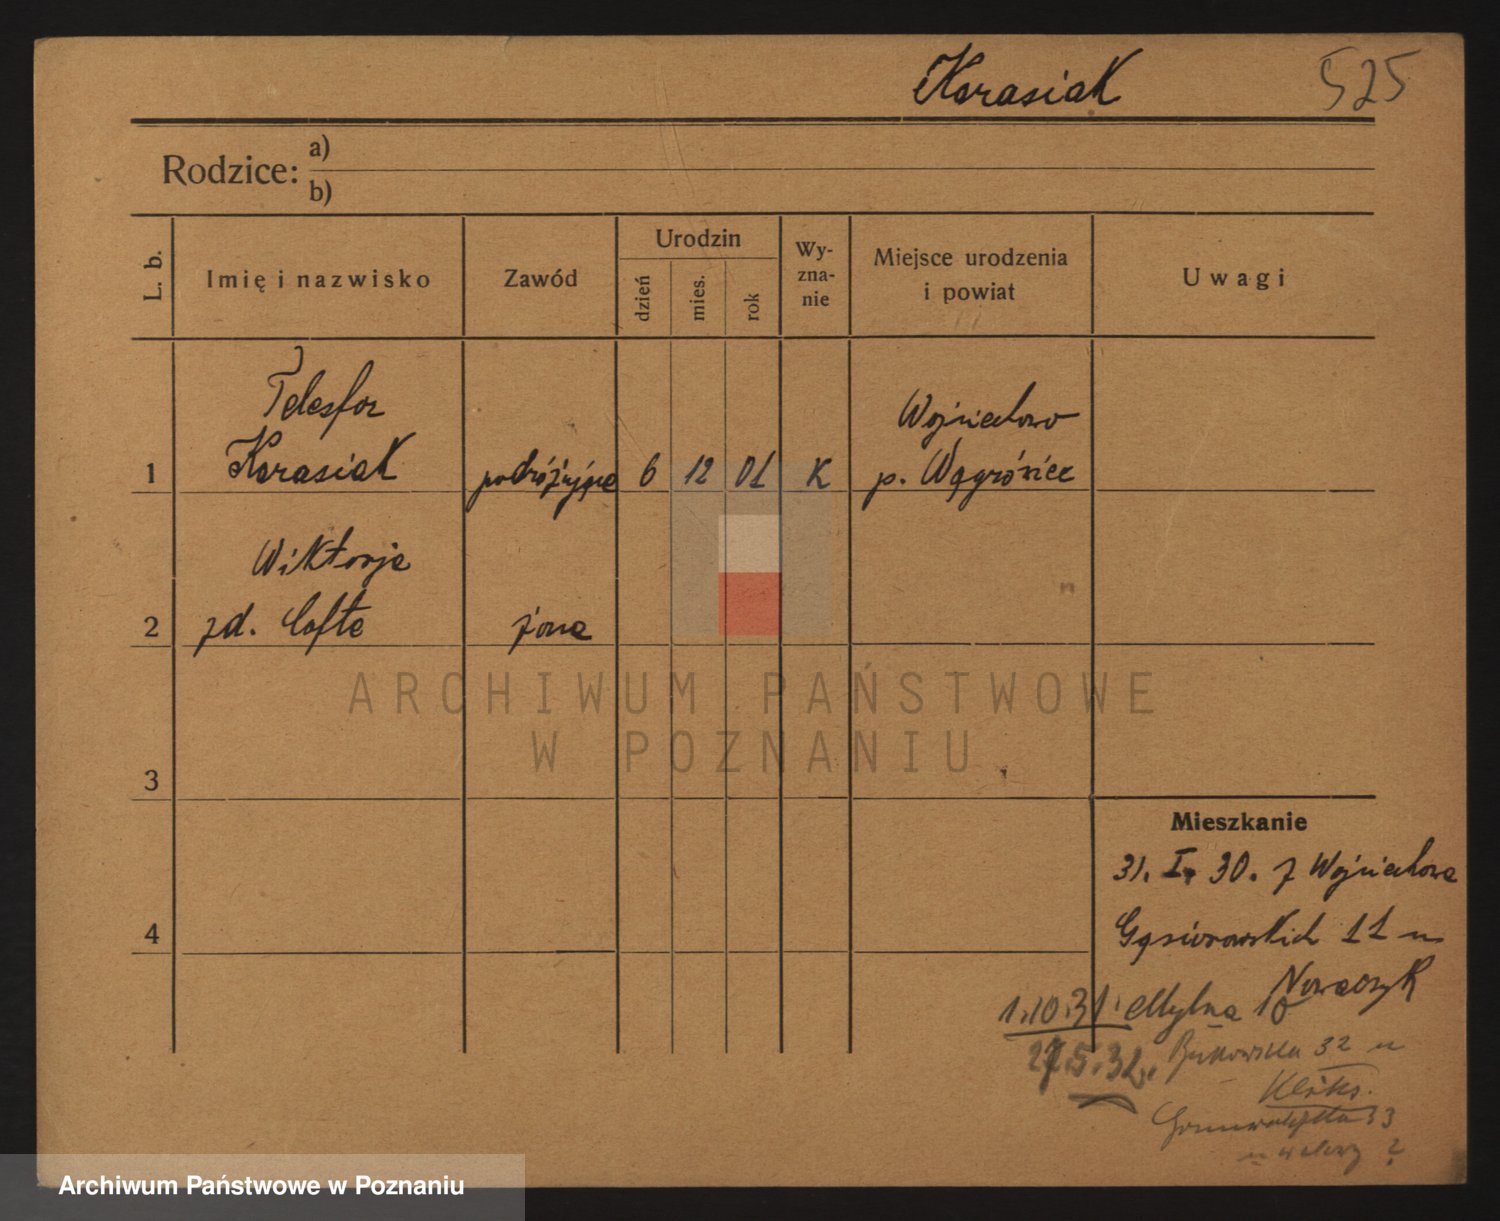 Karasiak 525
Rodzice: a)
b)
L. b.
Imię i nazwisko
Zawód
Urodzin
dzień
mies.
rok
Wy-
zna-
nie
Miejsce urodzenia
i powiat
Uwagi
Telesfor
Karasiak
1
podróżujące
6 12 01 K
Wojciechowo
p. Wągrówiec
Wiktorja
2
zd. Cofta
żona
3
4
Mieszkanie
31. I. 30. z Wojciechowa
Gąsiorowskich 11 u
Nowaczyk
1.10.31. Mylna 10
27.5.32. Bukowska 32 u
Grunwaldzka 33
u wdowy ?
ARCHIWUM PAŃSTWOWE
W POZNANIU
Archiwum Państwowe w Poznaniu